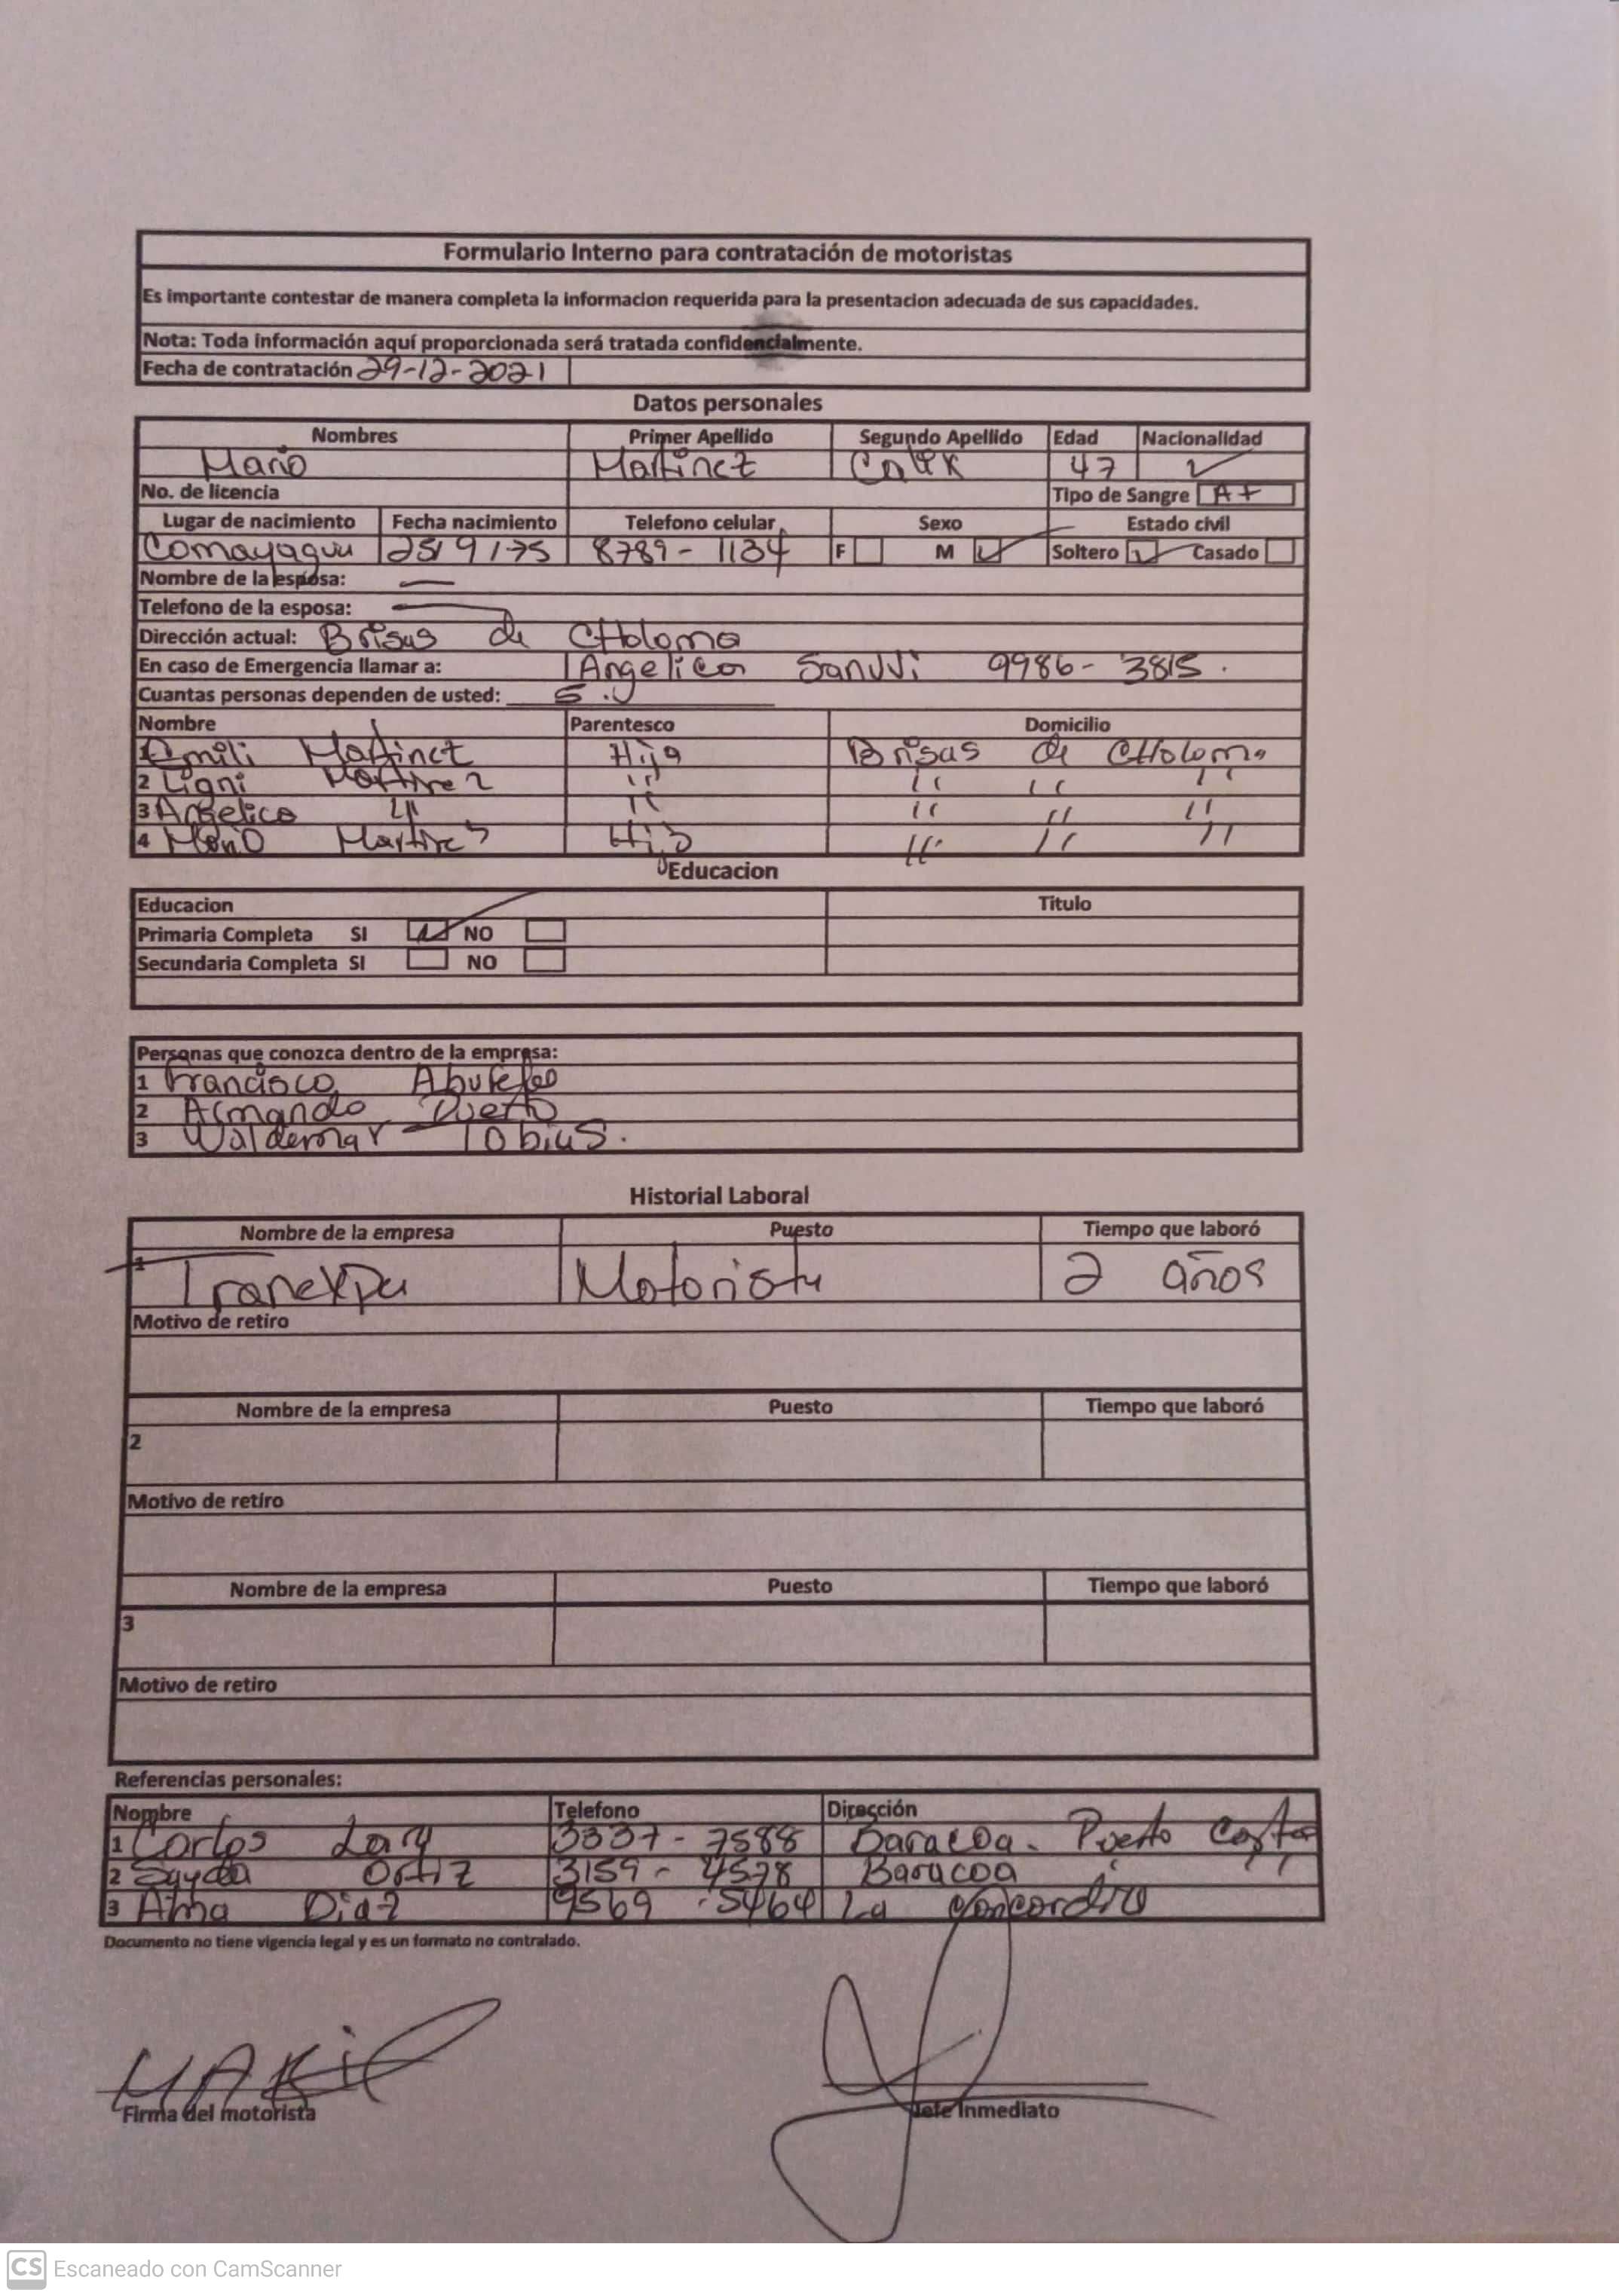 Formulario Interno para contratación de motoristas
Es importante contestar de manera completa la informacion requerida para la presentacion adecuada de sus capacidades.
Nota: Toda información aquí proporcionada será tratada confidencialmente.
Fecha de contratación 29-12-2021
Datos personales
Nombres Primer Apellido Segundo Apellido Edad Nacionalidad
Mario Martinez 47
No. de licencia Tipo de Sangre A+
Lugar de nacimiento Fecha nacimiento Telefono celular Sexo Estado civil
Comayagua 25/9/75 8789-1134 F M Soltero Casado
Nombre de la esposa:
Telefono de la esposa:
Dirección actual: Brisas de CHoloma
En caso de Emergencia llamar a: Angelica 9986-3815.
Cuantas personas dependen de usted: 5.
Nombre Parentesco Domicilio
1 Emili Martinez Hija Brisas de CHoloma
2 Martinez " " " "
3 Angelica " " " " "
4 Mario Martinez Hijo " " "
Educacion
Educacion Titulo
Primaria Completa SI NO
Secundaria Completa SI NO
Personas que conozca dentro de la empresa:
1 Francisco
2 Armando Puerto
3 Waldemar Tobias.
Historial Laboral
Nombre de la empresa Puesto Tiempo que laboró
1 Motorista 2 años
Motivo de retiro
Nombre de la empresa Puesto Tiempo que laboró
2
Motivo de retiro
Nombre de la empresa Puesto Tiempo que laboró
3
Motivo de retiro
Referencias personales:
Nombre Telefono Dirección
1 Carlos 3337-7588 Baracoa. Puerto Cortes
2 Sayda Ortiz 3159-4578 Baracoa " "
3 Alma Diaz 9569-5464 La Concordia
Documento no tiene vigencia legal y es un formato no contralado.
Firma del motorista Jefe Inmediato
CS Escaneado con CamScanner